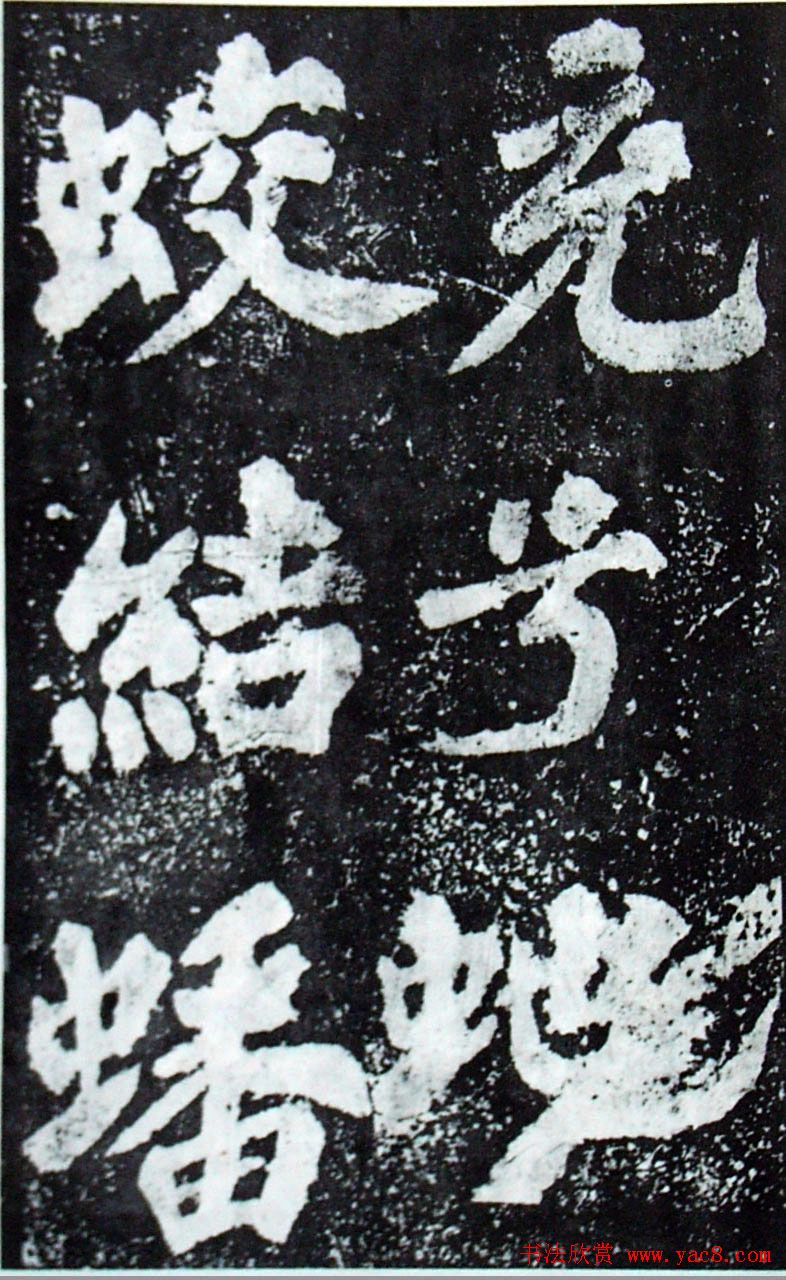 元兮
蛟結蟠
书法欣赏 www.yac8.com